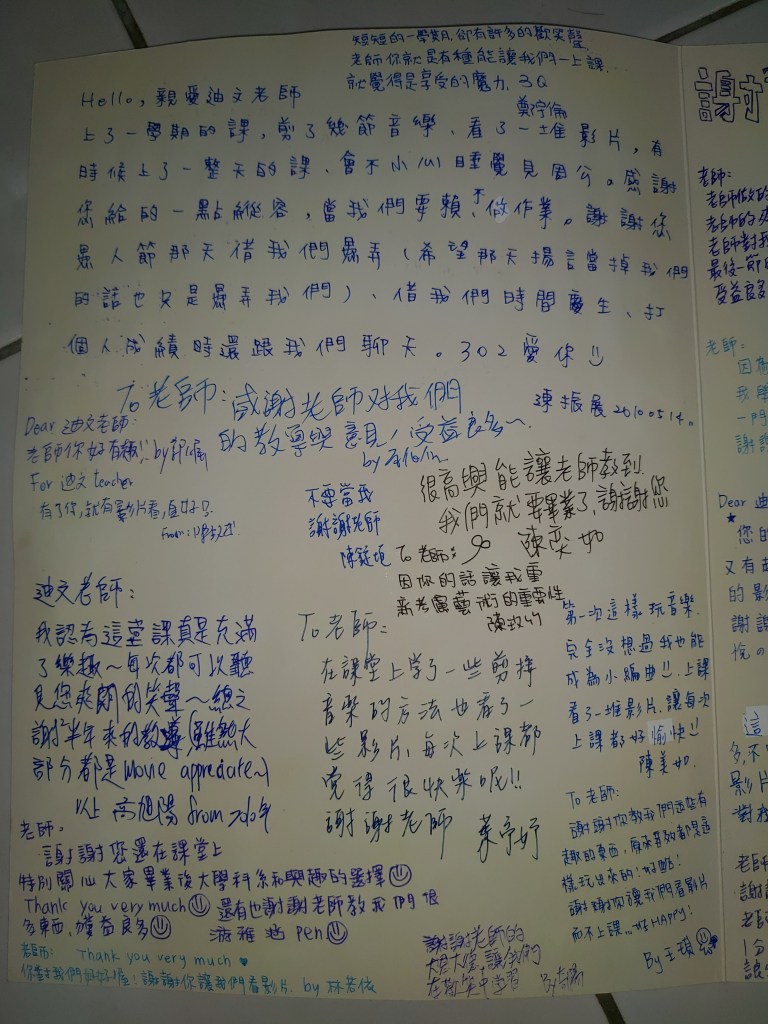 短短的一學期,卻有許多的歡笑聲,
老師你就是有種能讓我們一上課
就覺得是享受的魔力. 3Q
Hello, 親愛迪文老師
上了一學期的課,剪了幾節音樂、看了一堆影片,有
時候上了一整天的課、會不小心睡覺見周公。感謝
您給的一點縱容,當我們耍賴不做作業。謝謝您
愚人節那天借我們愚弄(希望那天揚言當掉我們
的話也只是愚弄我們)、借我們時間慶生、打
個人成績時還跟我們聊天。302愛你
陳振展 20100514
To 老師:感謝老師對我們
的教導與意見,受益良多~
by
Dear 迪文老師:
老師你好有趣!! by
For 迪文 teacher
有了你,就有影片看,真好
From:
不要當我
謝謝老師
很高興能讓老師教到
我們就要畢業了,謝謝您
陳奕如
To 老師:
因你的話讓我重
新考慮藝術的重要性
陳玟竹
迪文老師:
我認為這堂課真是充滿
了樂趣~每次都可以聽
見您爽朗的笑聲~總之
謝謝半年來的教導(雖然大
部分都是Movie appreciate~)
以上 高旭陽 from
To 老師:
在課堂上學了一些剪接
音樂的方法也看了一
些影片,每次上課都
覺得很快樂呢!!
謝謝老師 葉亭妤
第一次這樣玩音樂.
完全沒想過我也能
成為小編曲!! 上課
看了一堆影片.讓每次
上課都好愉快!!
陳美如.
To 老師:
謝謝你教我們這些有
趣的東西,原來音效都是這
樣玩出來的!好酷!
謝謝你讓我們看影片
而不上課...好HAPPY!
By 王
老師。
謝謝您還在課堂上
特別關心大家畢業後大學科系和興趣的選擇
Thank you very much 還有也謝謝老師教我們很
多東西,獲益良多 游雅迪 pen
老師: Thank you very much
你對我們好好喔!謝謝你讓我們看影片. by 林若依
謝謝老師的
大恩大德 讓我們
在歡笑中學習
謝
老師:
老師做的
老師的爽
老師對我
最後一節
受益良多
老師:
因為
我
一門
謝謝
Dear 迪
您的
又有
的影
謝謝
悅
這
多,不
影片
對
老師
謝謝
老
1分